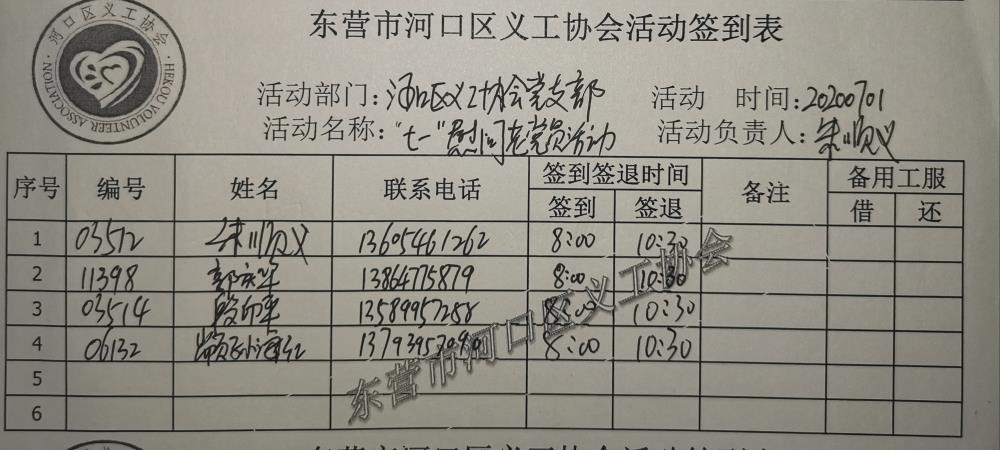 河口区义工协会
HEKOU VOLUNTEER ASSOCIATION
东营市河口区义工协会活动签到表
活动部门:河口区义工协会党支部 活动 时间:20200701
活动名称:"七一"慰问老党员活动 活动负责人:朱顺义
序号 编号 姓名 联系电话 签到签退时间 备注 备用工服
签到 签退 借 还
1 03512 朱顺义 13605461262 8:00 10:30
2 11398 13864775879 8:00 10:30
3 03514 13589957288 8:00 10:30
4 06132 8:00 10:30
5
6
东营市河口区义工协会
东营市河口区义工协会活动签到表